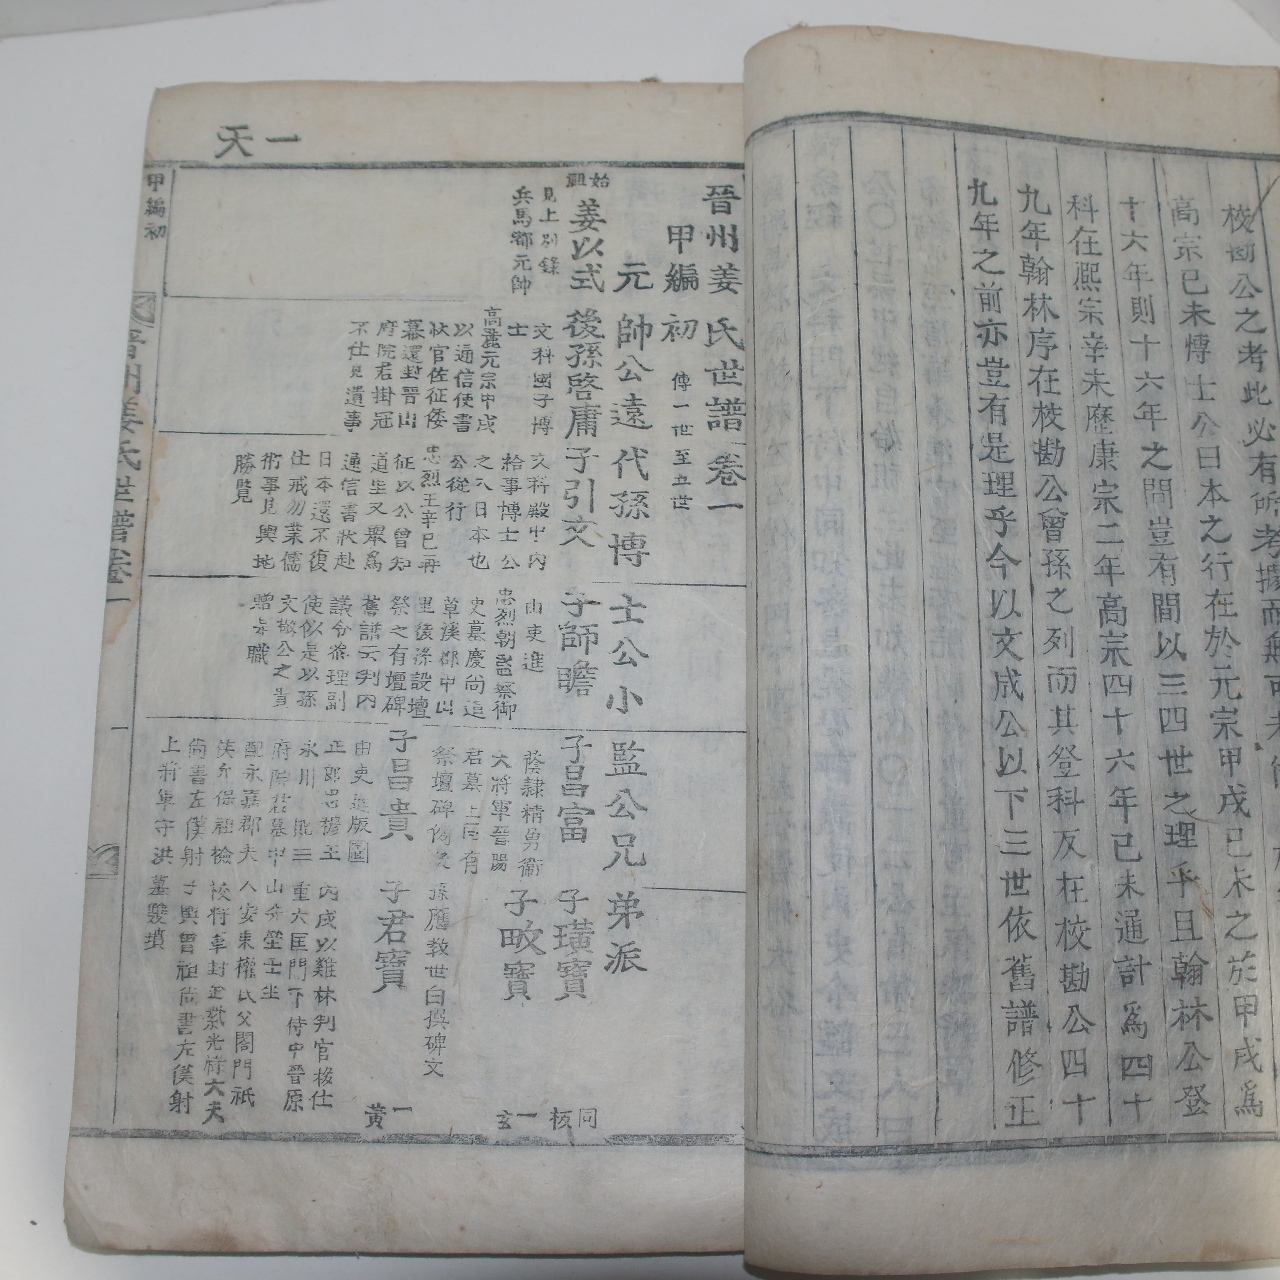 校勘公之考此必有所考據而無
高宗己未博士公日本之行在於元宗甲戌己未之於甲戌爲
十六年則十六年之間豈有間以三四世之理乎且翰林公登
科在熙宗辛未歷康宗二年高宗四十六年己未通計爲四十
九年翰林序在校勘公會孫之列而其登科反在校勘公四十
九年之前亦豈有是理乎今以文成公以下三世依舊譜修正
晉州姜氏世譜卷一
甲編初 傳一世至五世
元帥公遠代孫博士公小監公兄弟派
始祖
姜以式
見上別錄
兵馬都元帥
後孫啓庸
文科國子博
士
高麗元宗甲戌
以通信使書
狀官佐征倭
幕還封晉山
府院君掛冠
不仕見遺事
子引文
文科殿中內
給事博士公
之入日本也
公從行
忠烈王辛巳再
征以公曾知
道里又擧爲
通信書狀赴
日本還不復
仕戒勿業儒
術事見輿地
勝覽
子師瞻
由吏進
忠烈朝監察御
史墓慶尙道
草溪郡中山
里後孫設壇
祭之有壇碑
舊譜云判內
議令佐理副
使似是以孫
文敬公之貴
贈 職
子昌富
蔭隷精勇衛
大將軍晉陽
君墓上同有
祭壇碑
孫應敎世白撰碑文
子璜寶
同 校
子畋寶
一 玄
子昌貴
由吏進版圖
正郞
子君寶
一 黃
丙戌以雞林判官後仕
重大匡門下侍中晉原
府院君墓
配永嘉郡夫人安東權氏父閤門祗
校將軍封金紫光祿大夫
尙書左僕射 曾祖尙書左僕射
上將軍守洪墓雙墳
天一
甲編初
晉州姜氏世譜卷一
一